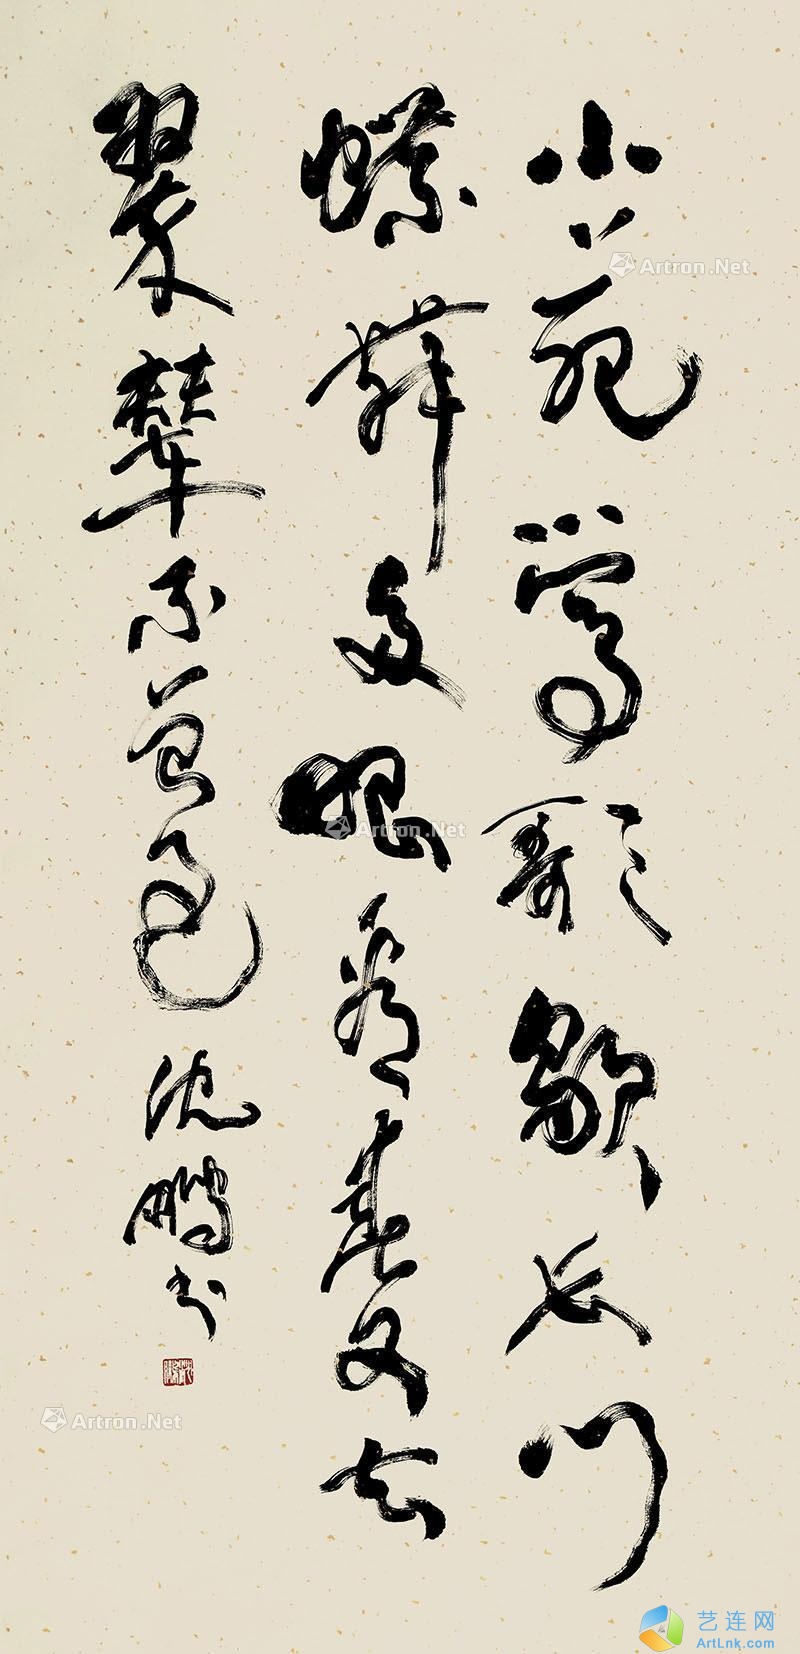 小苑莺歌歇长门
蝶舞多眼看春又去
翠辇不曾过
沈鹏书
Artron.Net
Artron.Net
Artron.Net
艺连网
ArtLnk.com